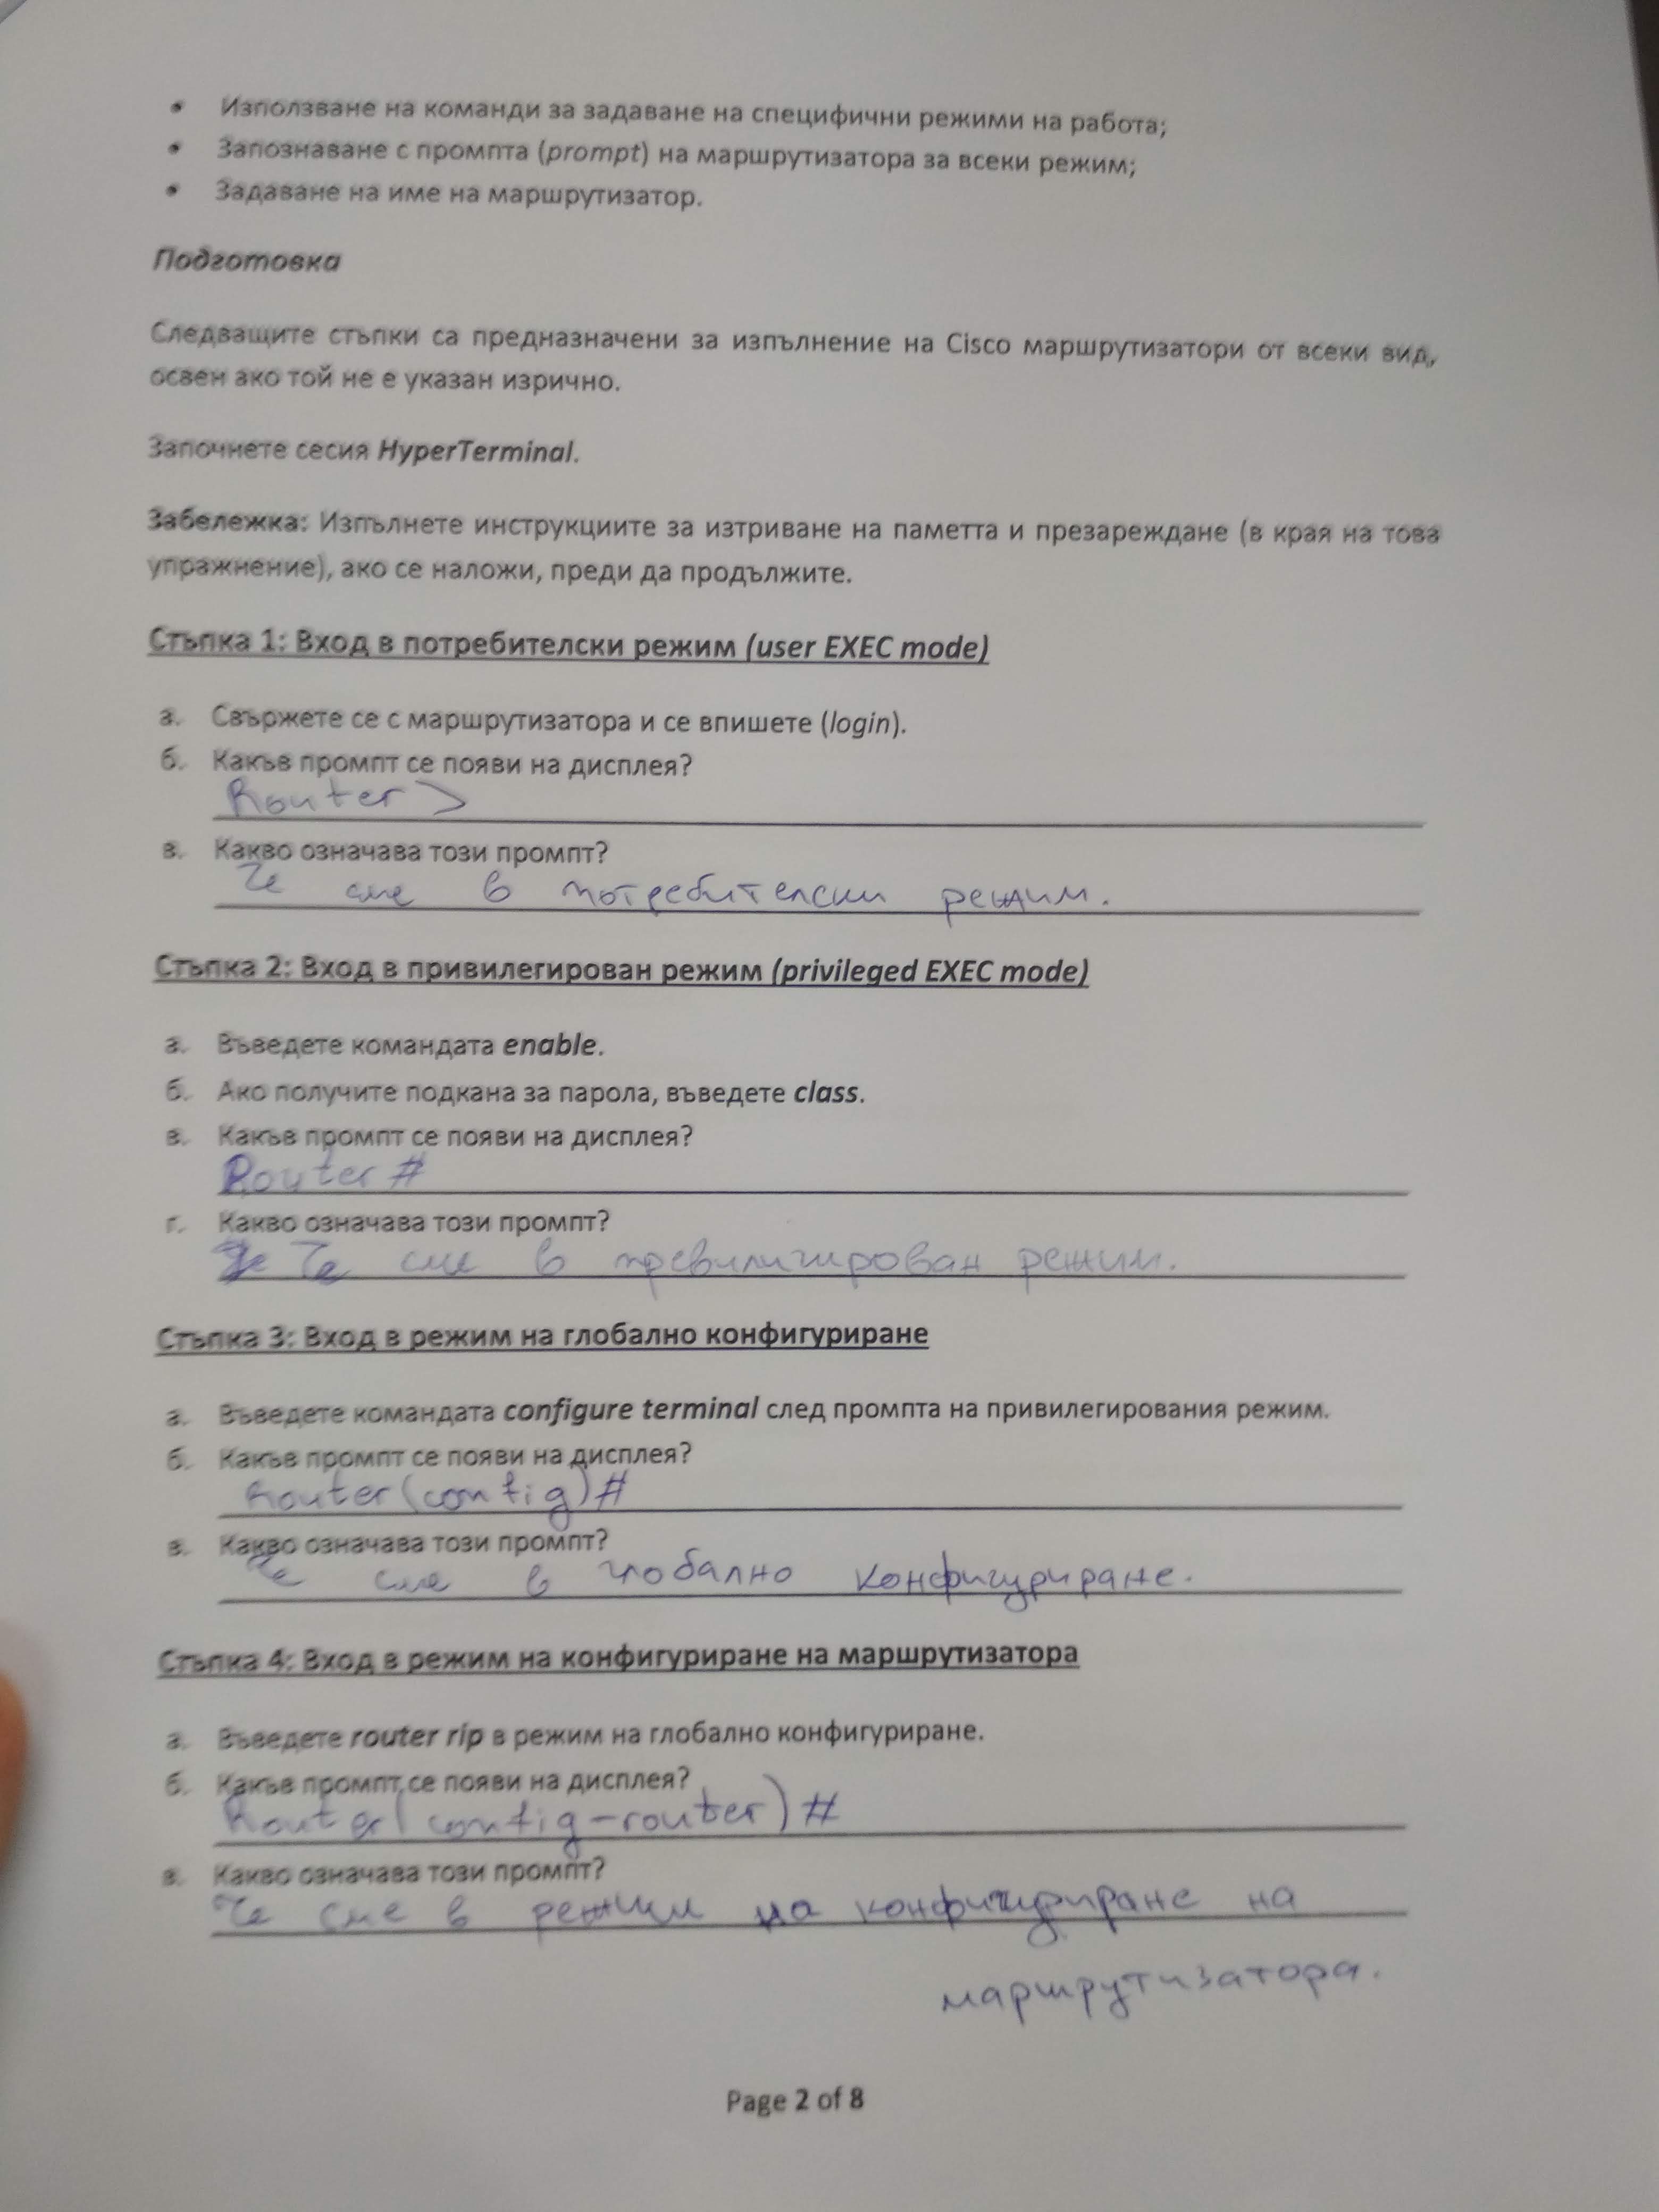 • Използване на команди за задаване на специфични режими на работа;
• Запознаване с промпта (prompt) на маршрутизатора за всеки режим;
• Задаване на име на маршрутизатор.
Подготовка
Следващите стъпки са предназначени за изпълнение на Cisco маршрутизатори от всеки вид,
освен ако той не е указан изрично.
Започнете сесия HyperTerminal.
Забележка: Изпълнете инструкциите за изтриване на паметта и презареждане (в края на това
упражнение), ако се наложи, преди да продължите.
Стъпка 1: Вход в потребителски режим (user EXEC mode)
а. Свържете се с маршрутизатора и се впишете (login).
б. Какъв промпт се появи на дисплея?
Router >
в. Какво означава този промпт?
Че сме в потребителски режим.
Стъпка 2: Вход в привилегирован режим (privileged EXEC mode)
а. Въведете командата enable.
б. Ако получите подкана за парола, въведете class.
в. Какъв промпт се появи на дисплея?
Router #
г. Какво означава този промпт?
Че сме в превилигирован режим.
Стъпка 3: Вход в режим на глобално конфигуриране
а. Въведете командата configure terminal след промпта на привилегирования режим.
б. Какъв промпт се появи на дисплея?
Router (config) #
в. Какво означава този промпт?
Че сме в глобално конфигуриране.
Стъпка 4: Вход в режим на конфигуриране на маршрутизатора
а. Въведете router rip в режим на глобално конфигуриране.
б. Какъв промпт се появи на дисплея?
Router (config-router) #
в. Какво означава този промпт?
Че сме в режим на конфигуриране на
маршрутизатора.
Page 2 of 8